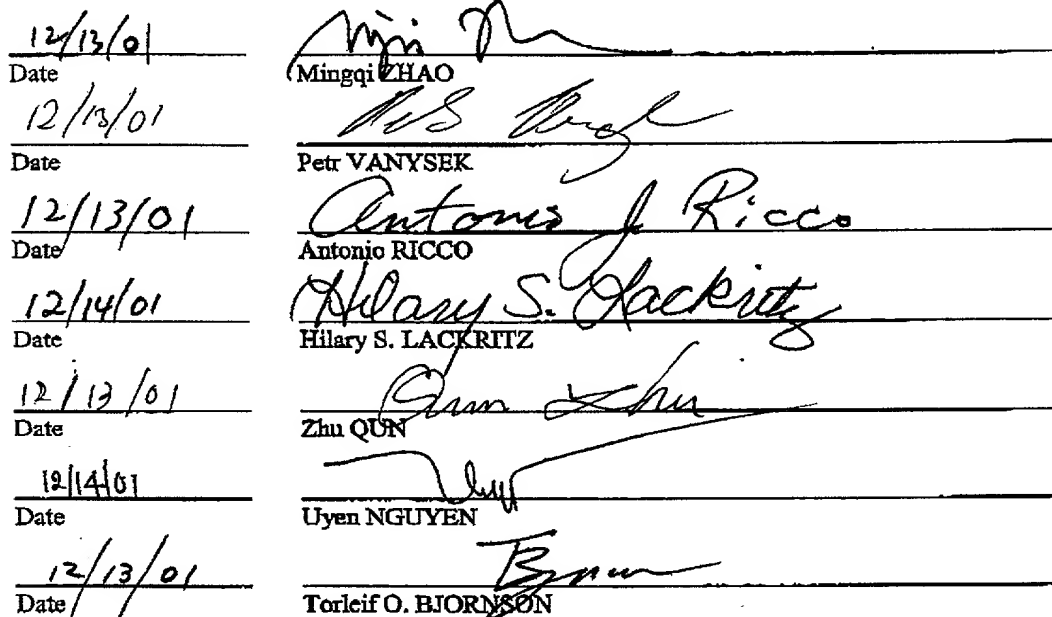 12/13/01
Date Mingqi ZHAO
12/13/01
Date Petr VANYSEK
12/13/01 Antonio J Ricco
Date Antonio RICCO
12/14/01 Hilary S. Lackritz
Date Hilary S. LACKRITZ
12/13/01 Qun Zhu
Date Zhu QUN
12/14/01
Date Uyen NGUYEN
12/13/01
Date Torleif O. BJORNSON